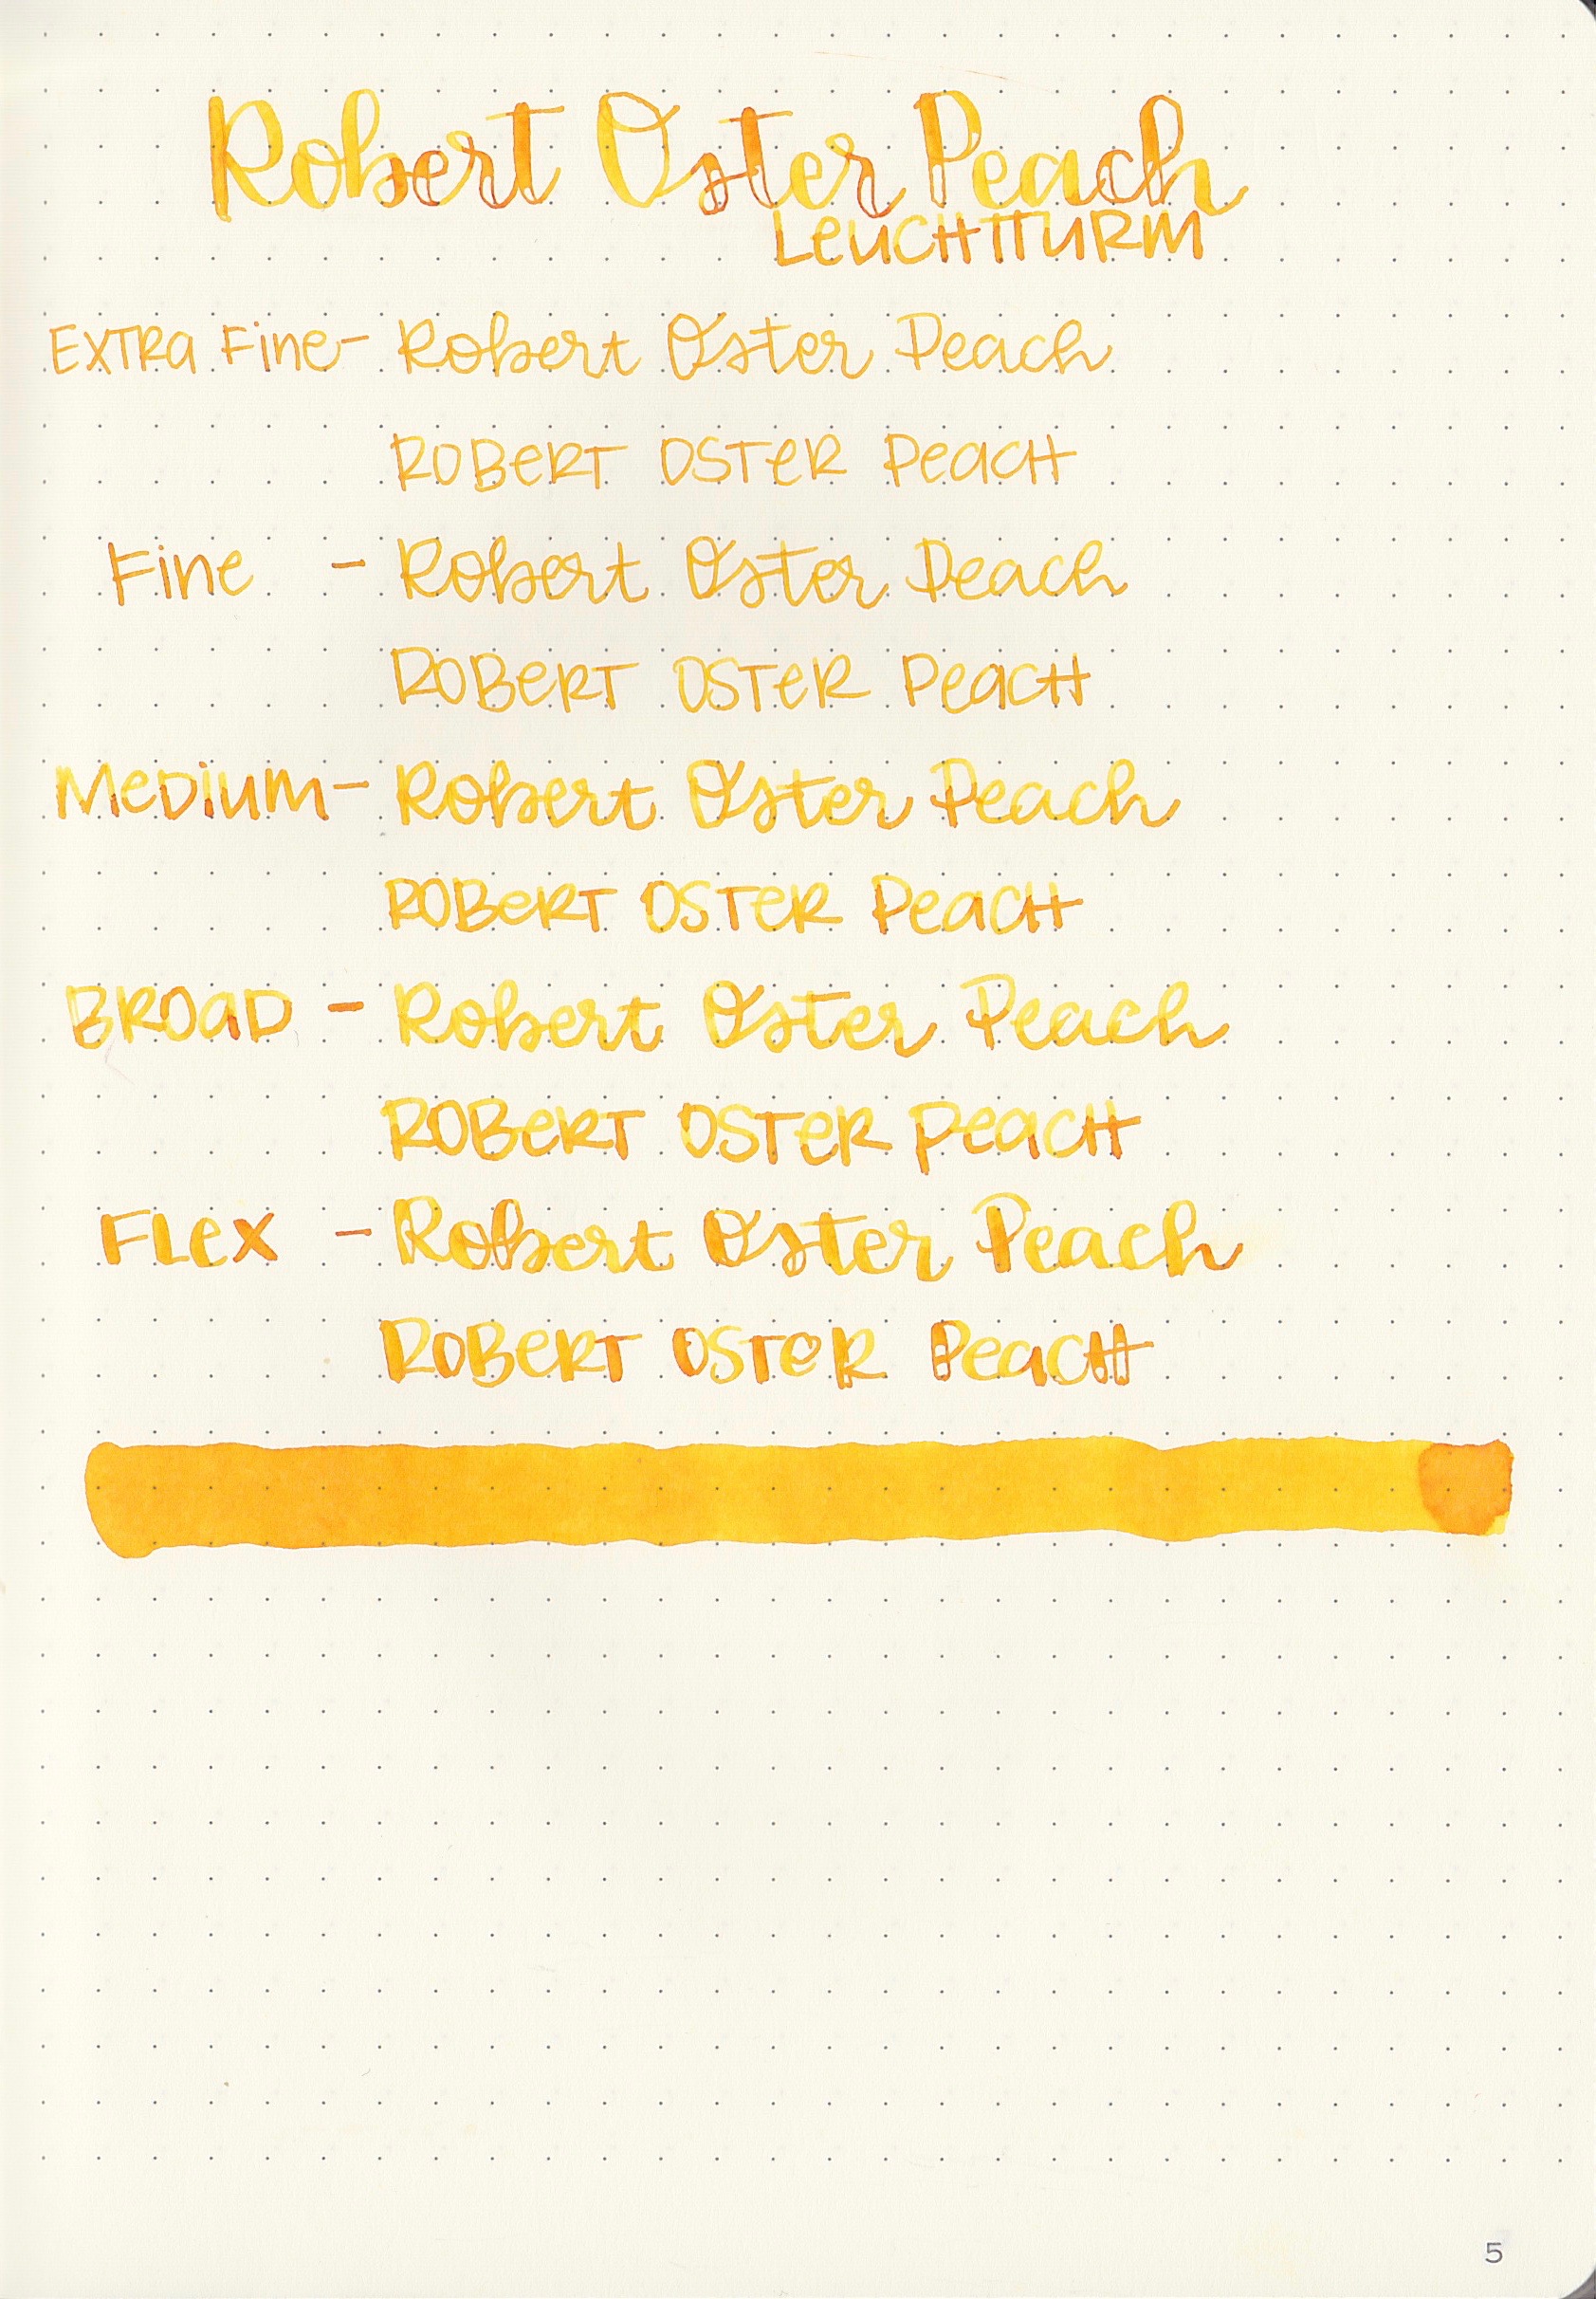 Robert Oster Peach
LeuCHTTuRM
EXTRa Fine- Robert Oster Peach
ROBeRT OSTeR PeacH
Fine - Robert Oster Peach
ROBeRT OSTeR PeacH
MeDium- Robert Oster Peach
ROBeRT OSTeR PeacH
BROaD - Robert Oster Peach
ROBeRT OSTeR PeacH
FLex - Robert Oster Peach
ROBeRT OSTeR PeacH
5